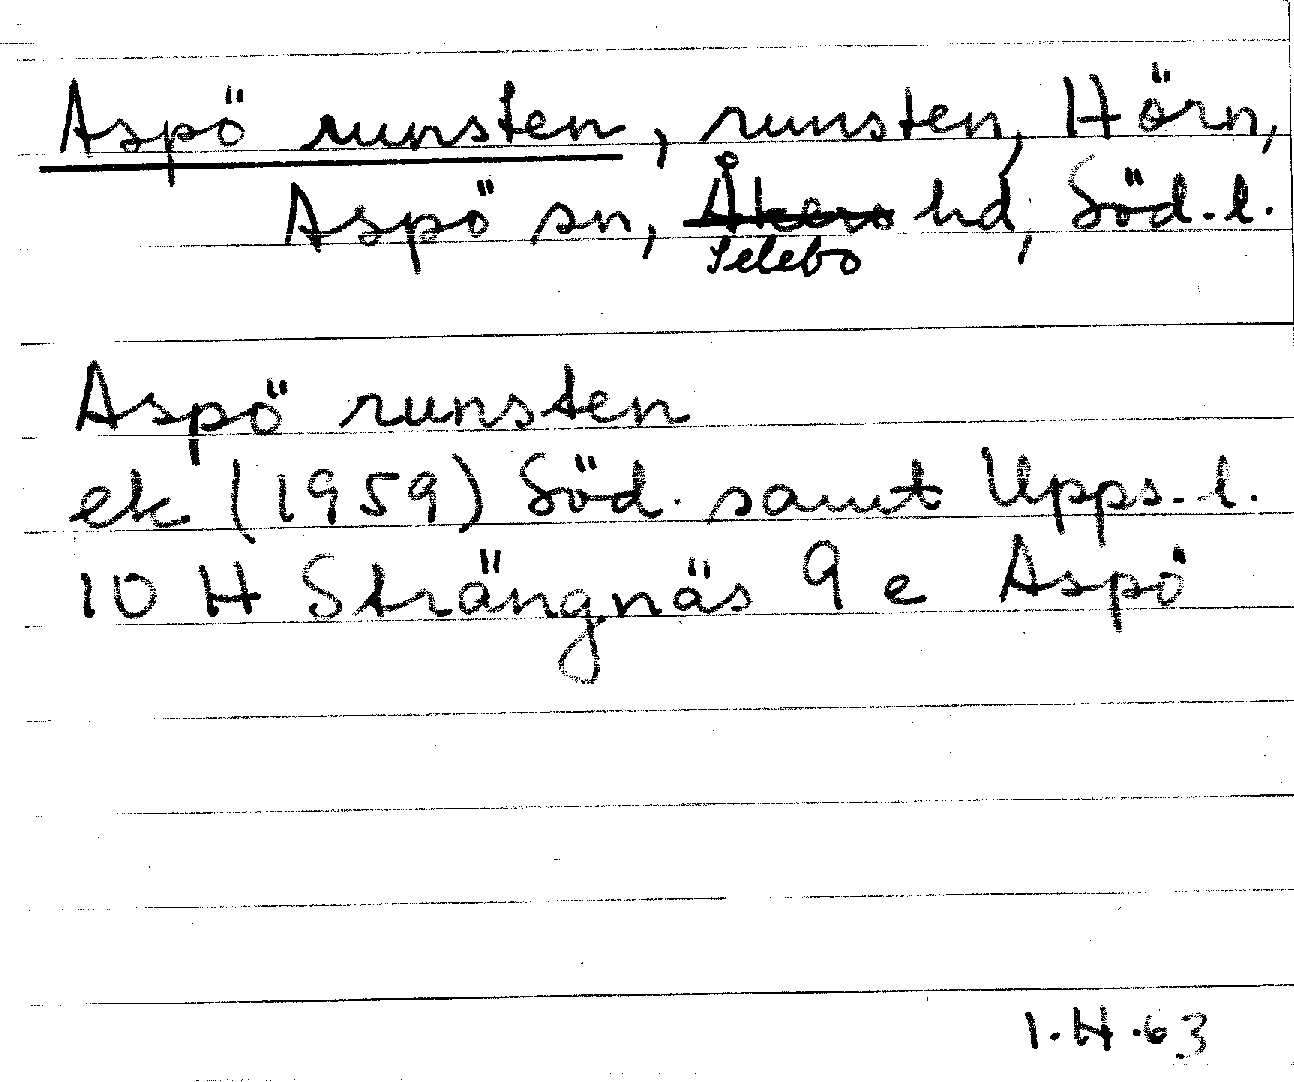 Aspö runsten, runsten, Hörn,
Aspö sn, Åkers hd, Söd.l.
Selebo
Aspö runsten
ek (1959) Söd. samt Upps.l.
10 H Strängnäs 9 e Aspö
1.H.63